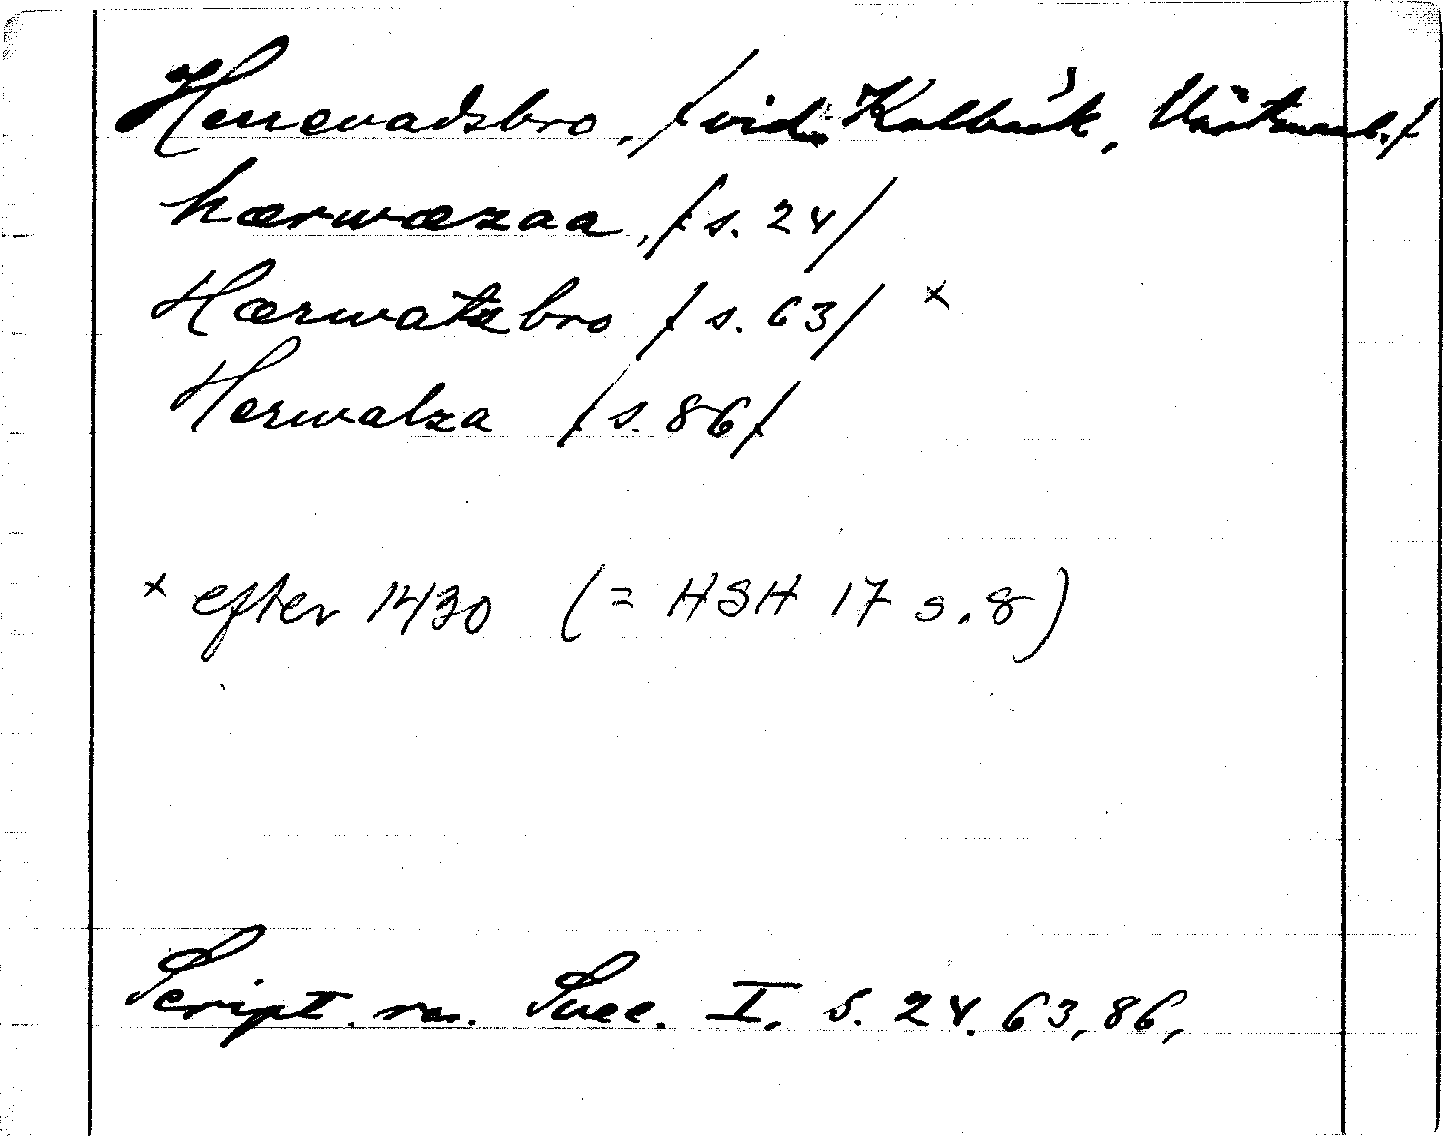 Herrevadsbro, / vid Kolbäck, Västmanl. /
hærwæzaa, / s. 24 /
Hærwatzbro / s. 63 / x
Herwalza / s. 86 /
x efter 1430 (= HSH 17 s. 8)
Script. rer. Svec. I. S. 24. 63, 86,